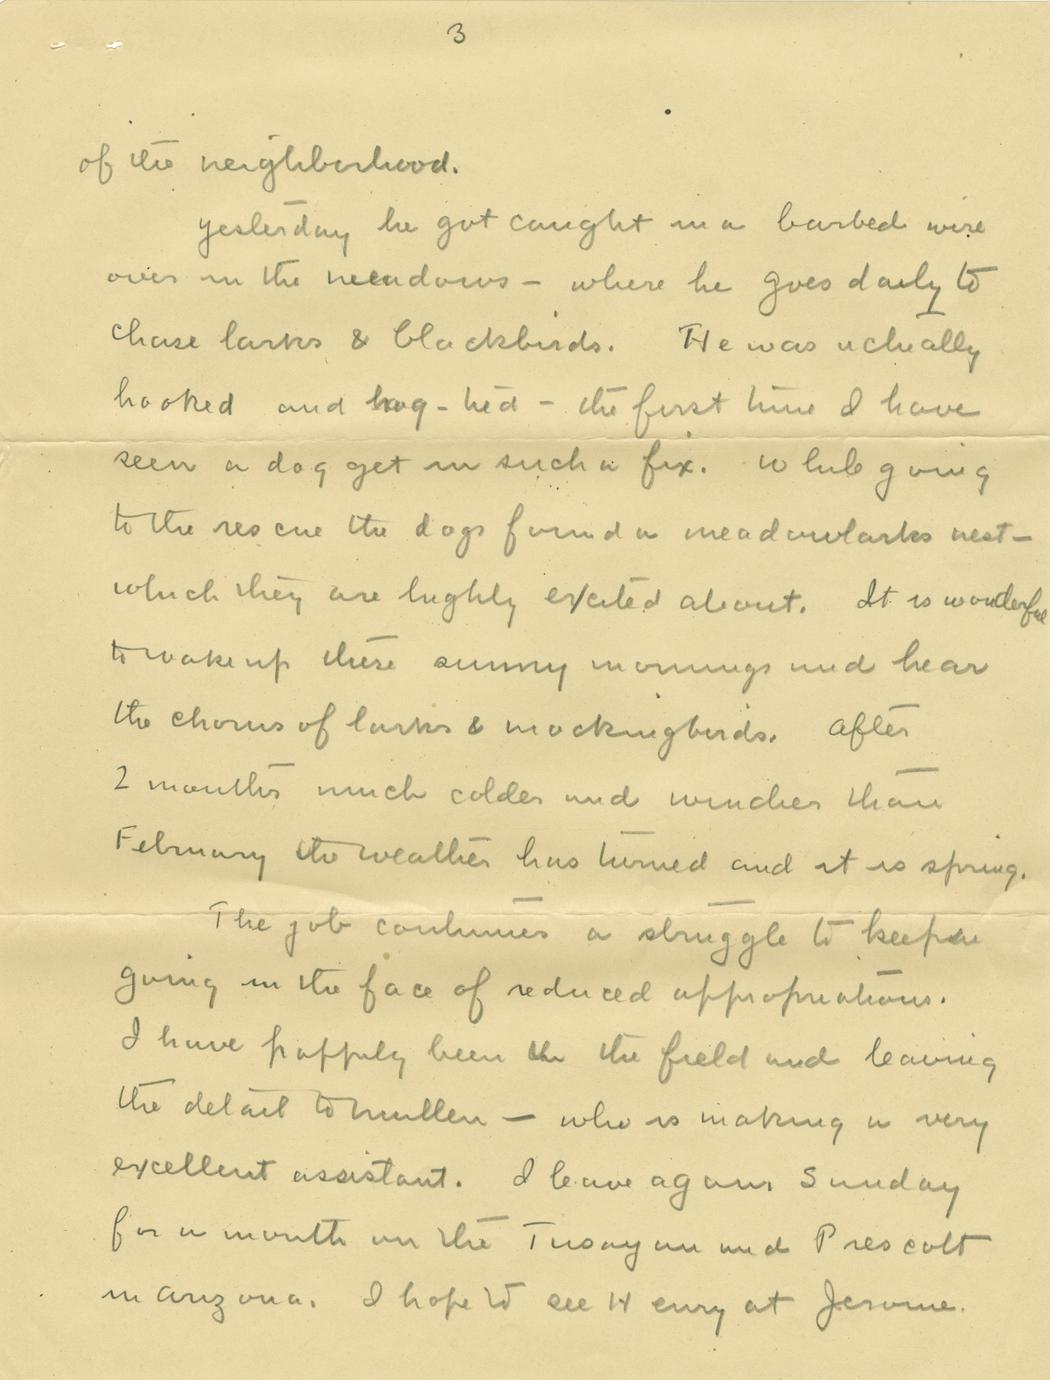 3
of the neighborhood.
Yesterday he got caught in a barbed wire
over in the meadows - where he goes daily to
chase larks & blackbirds. He was actually
hooked and hog-tied - the first time I have
seen a dog get in such a fix. While going
to the rescue the dogs found a meadowlarks nest -
which they are highly excited about. It is wonderful
to wake up these sunny mornings and hear
the chorus of larks & mockingbirds. After
2 months much colder and windier than
February the weather has turned and it is spring.
The job continues a struggle to keep
going in the face of reduced appropriations.
I have happily been the field and leaving
the detail to - who is making a very
excellent assistant. I leave again Sunday
for a month on the Tusayan and Prescott
in Arizona. I hope to see Henry at Jerome.